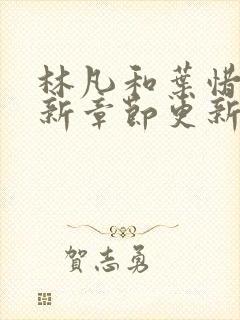 林凡和葉惜
新章節更新
賀志勇